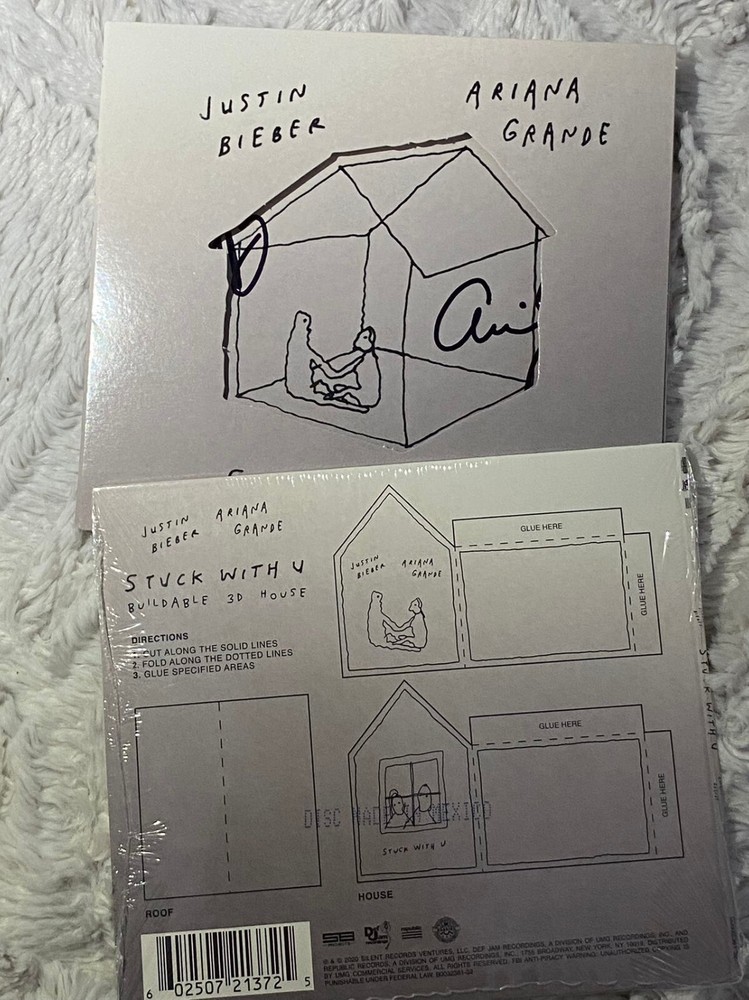 JUSTIN
BIEBER
ARIANA
GRANDE
Ari
JUSTIN
BIEBER
ARIANA
GRANDE
STUCK WITH U
BUILDABLE 3D HOUSE
DIRECTIONS
1. CUT ALONG THE SOLID LINES
2. FOLD ALONG THE DOTTED LINES
3. GLUE SPECIFIED AREAS
JUSTIN
BIEBER
ARIANA
GRANDE
GLUE HERE
GLUE HERE
STUCK WITH U
GLUE HERE
GLUE HERE
STUCK WITH U
DISC MADE IN MEXICO
ROOF
HOUSE
6 02507 21372 5
SB
Def Jam
republic
℗ & © 2020 SILENT RECORDS VENTURES, LLC. DEF JAM RECORDINGS, A DIVISION OF UMG RECORDINGS, INC. AND
REPUBLIC RECORDS, A DIVISION OF UMG RECORDINGS, INC., 1755 BROADWAY, NEW YORK, NY 10019. DISTRIBUTED
BY UMG COMMERCIAL SERVICES. ALL RIGHTS RESERVED. FBI ANTI-PIRACY WARNING: UNAUTHORIZED COPYING IS
PUNISHABLE UNDER FEDERAL LAW.